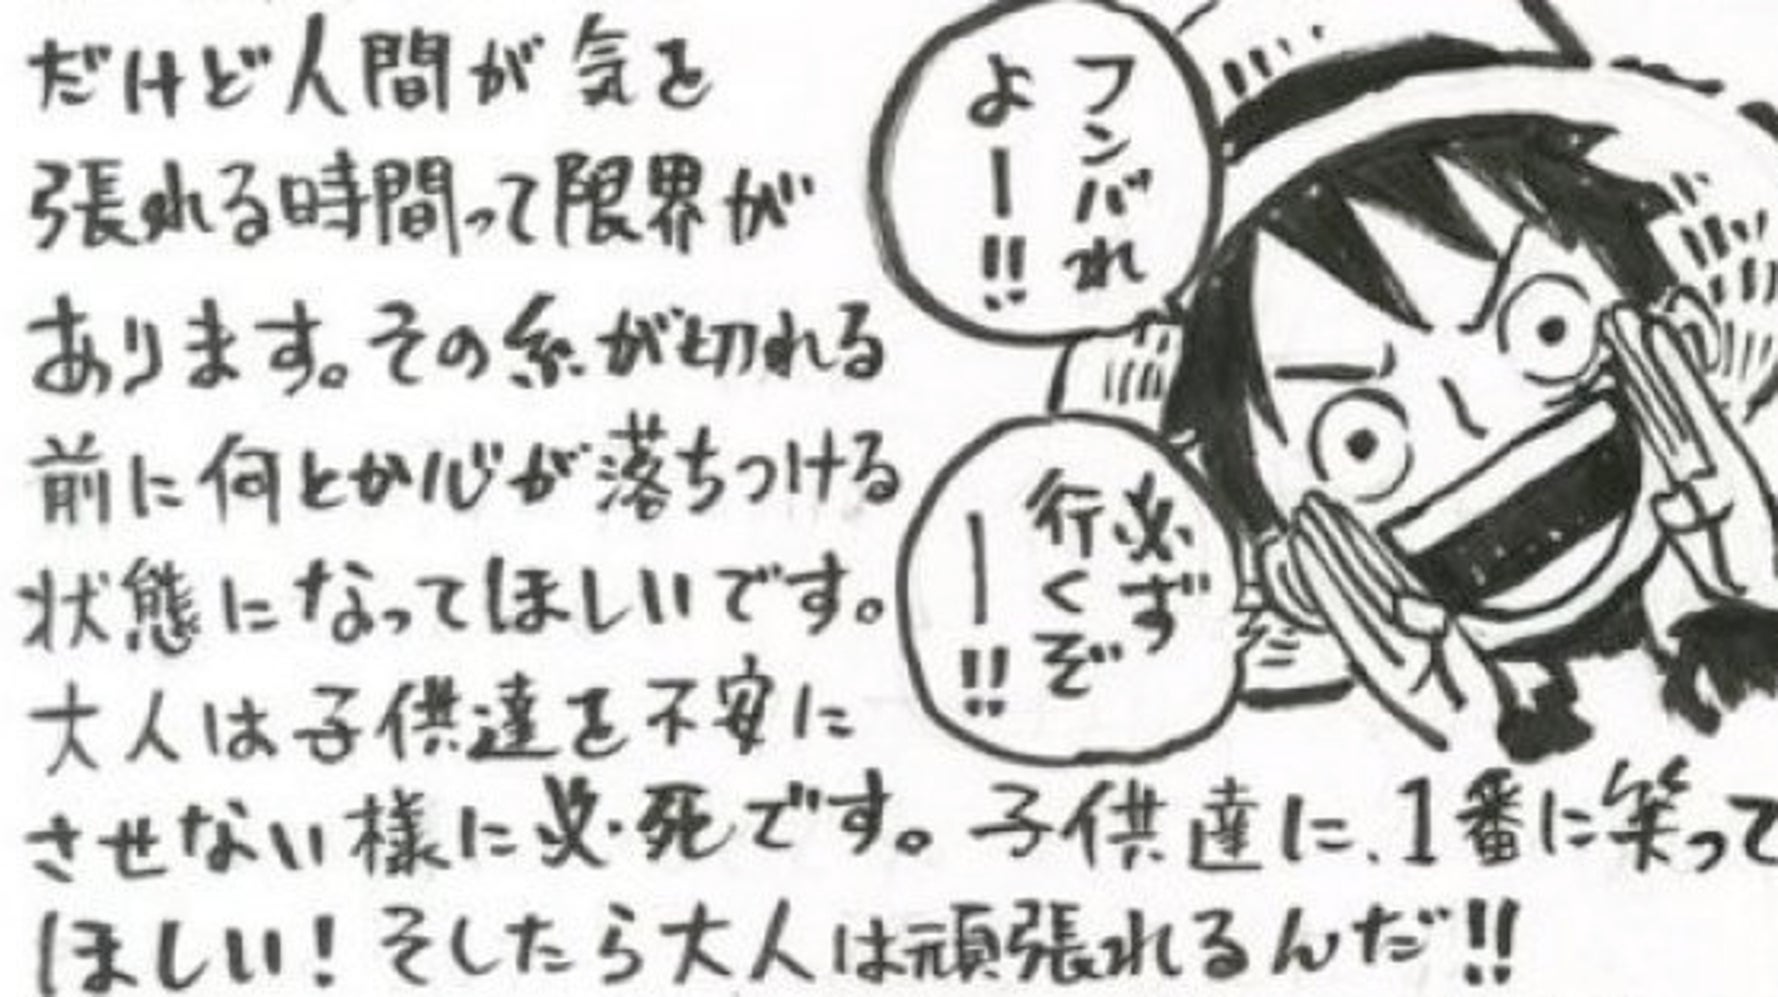 だけど人間が気を
張れる時間って限界が
あります。その糸が切れる
前に何とか心が落ちつける
状態になってほしいです。
大人は子供達を不安に
させない様に必死です。子供達に、1番に笑って
ほしい！そしたら大人は頑張れるんだ!!
フンバれ
よー!!
必ず
行くぞ
ー!!